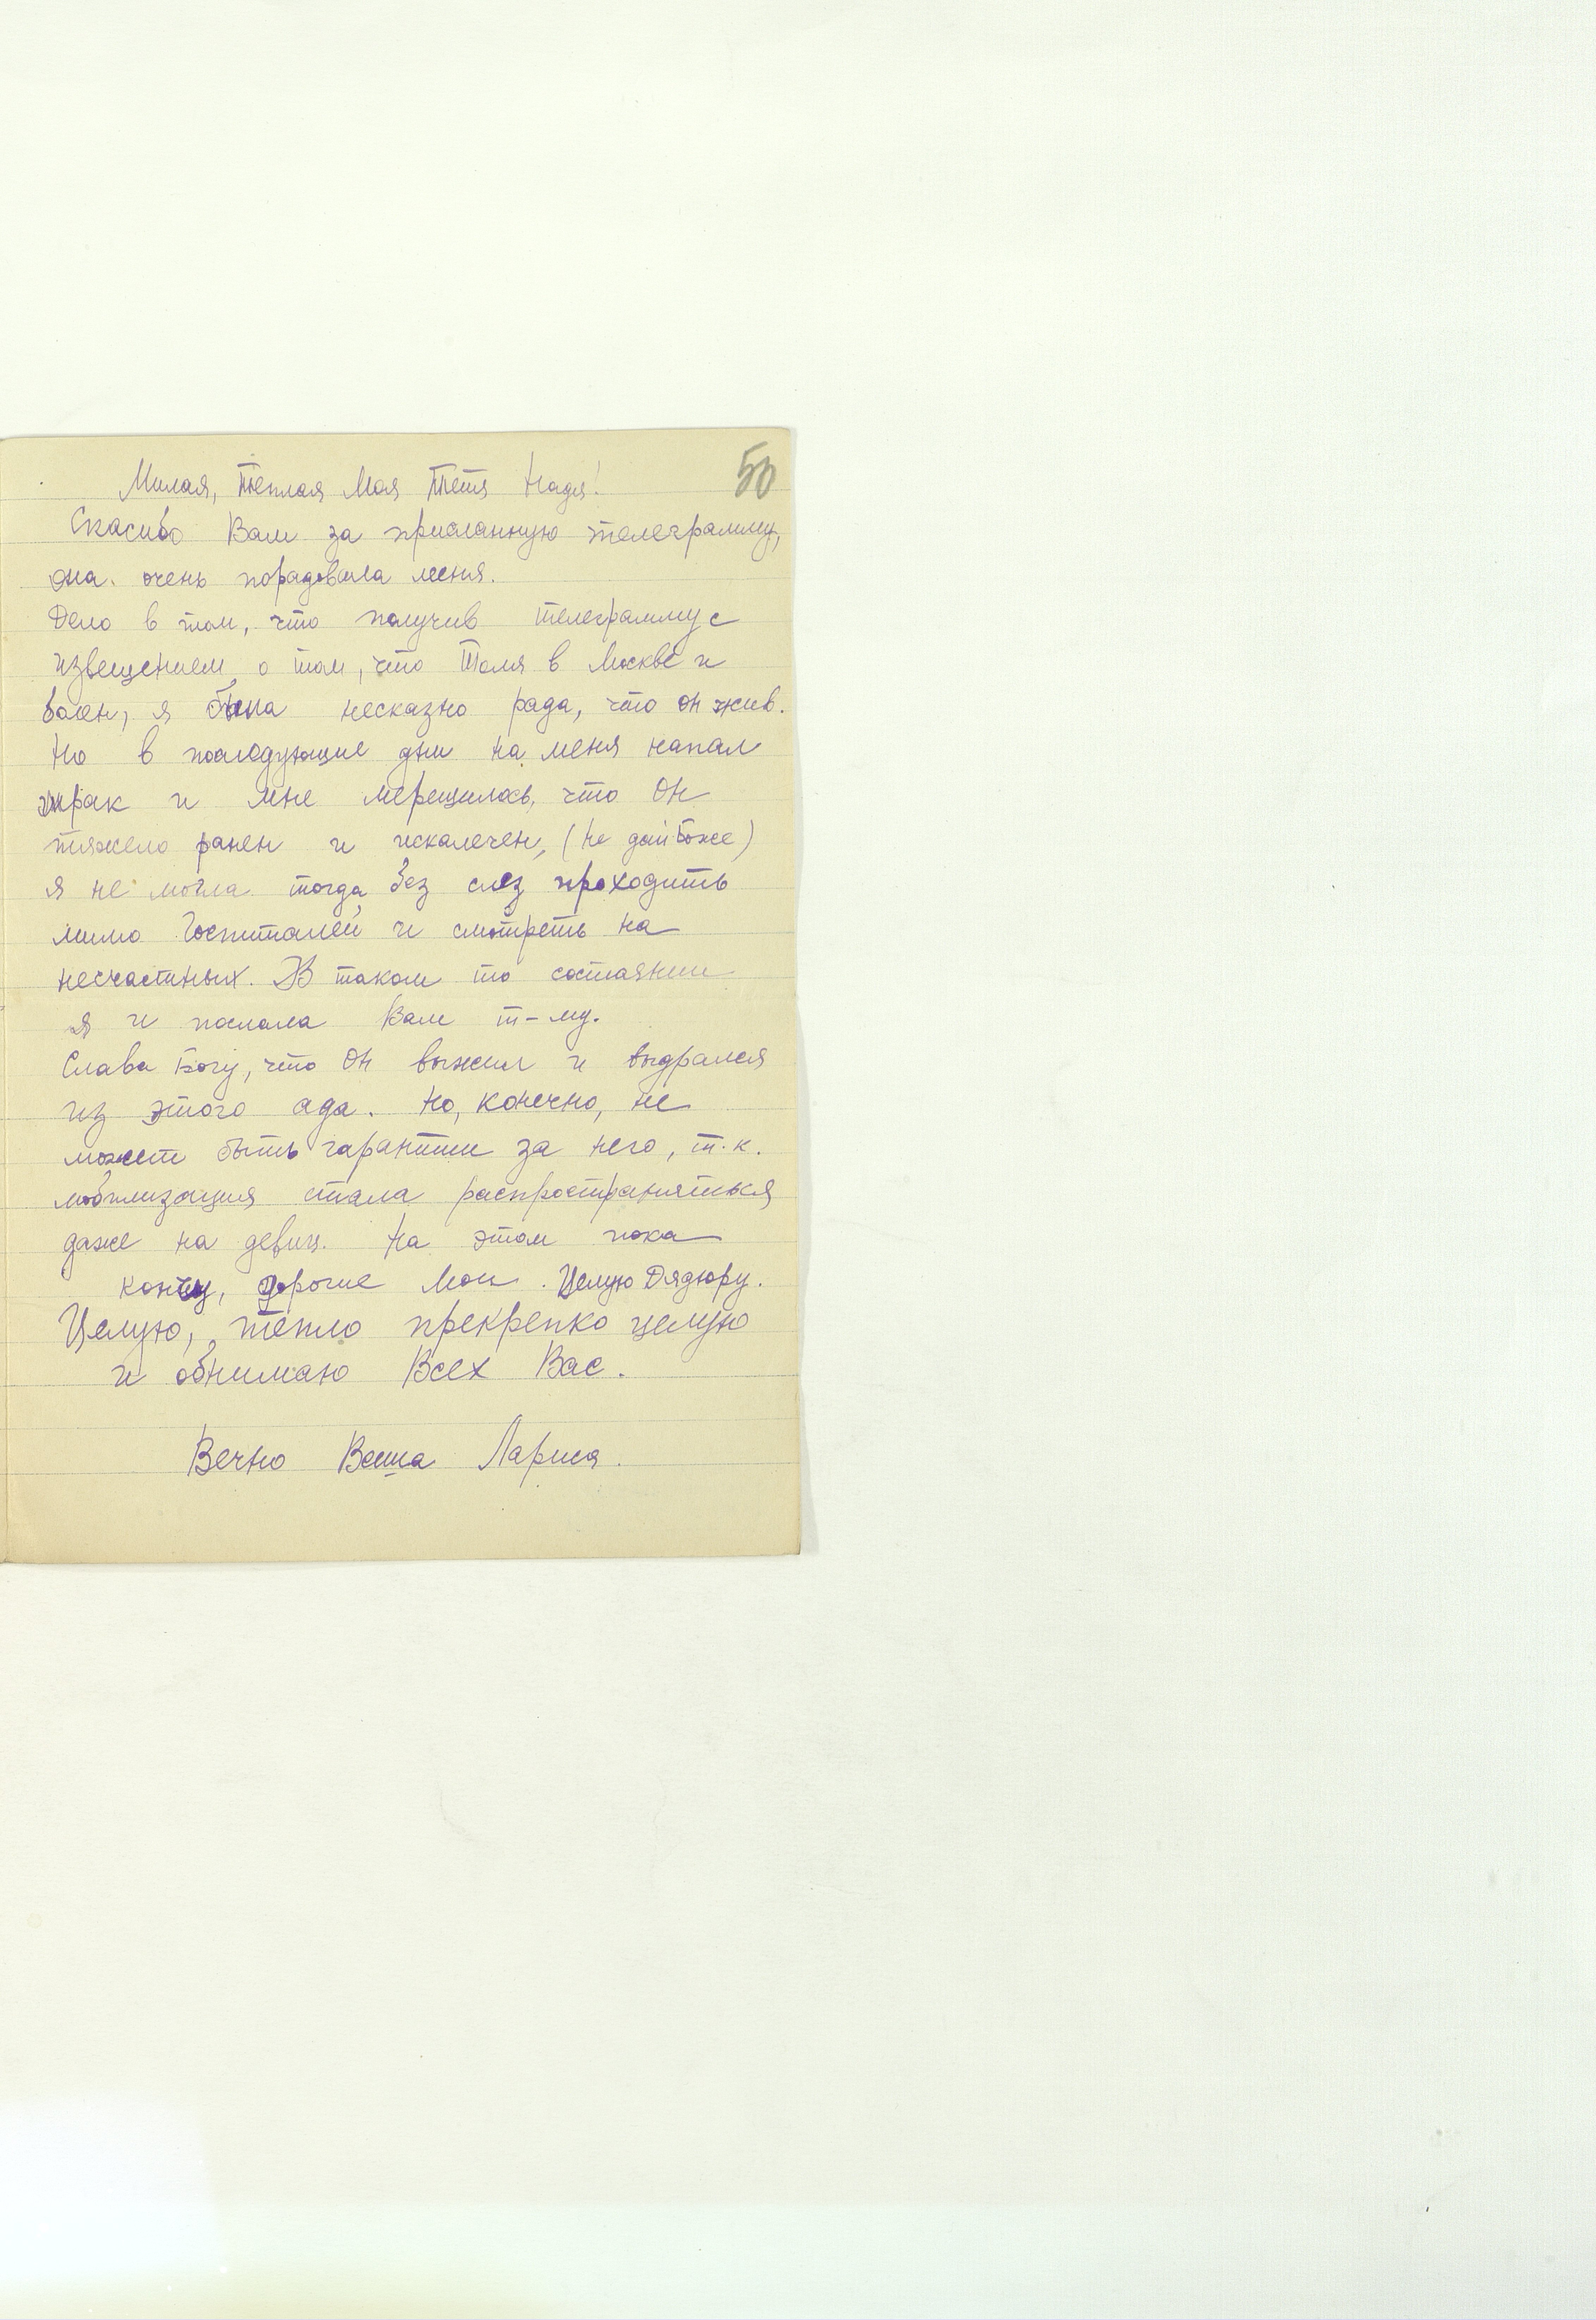 50
Милая, тёплая Моя Тётя Надя!
Спасибо Вам за присланную телеграмму,
она очень порадовала меня.
Дело в том, что получив телеграмму с
извещением о том, что Толя в Москве и
болен, я была несказно рада, что он жив.
Но в последующие дни на меня напал
мрак и мне мерещилось, что Он
тяжело ранен и искалечен, (не дай Боже)
я не могла тогда без слез проходить
мимо Госпиталей и смотреть на
несчастных. В таком то состоянии
я и послала Вам т-му.
Слава Богу, что Он выжил и выдрался
из этого ада. Но, конечно, не
может быть гарантии за него, т.к.
мобилизация стала распространяться
даже на девиц. На этом пока
кончу, дорогие Мои. Целую Дядюру.
Целую, тепло прекрепко целую
и обнимаю Всех Вас.
Вечно Ваша Лариса.